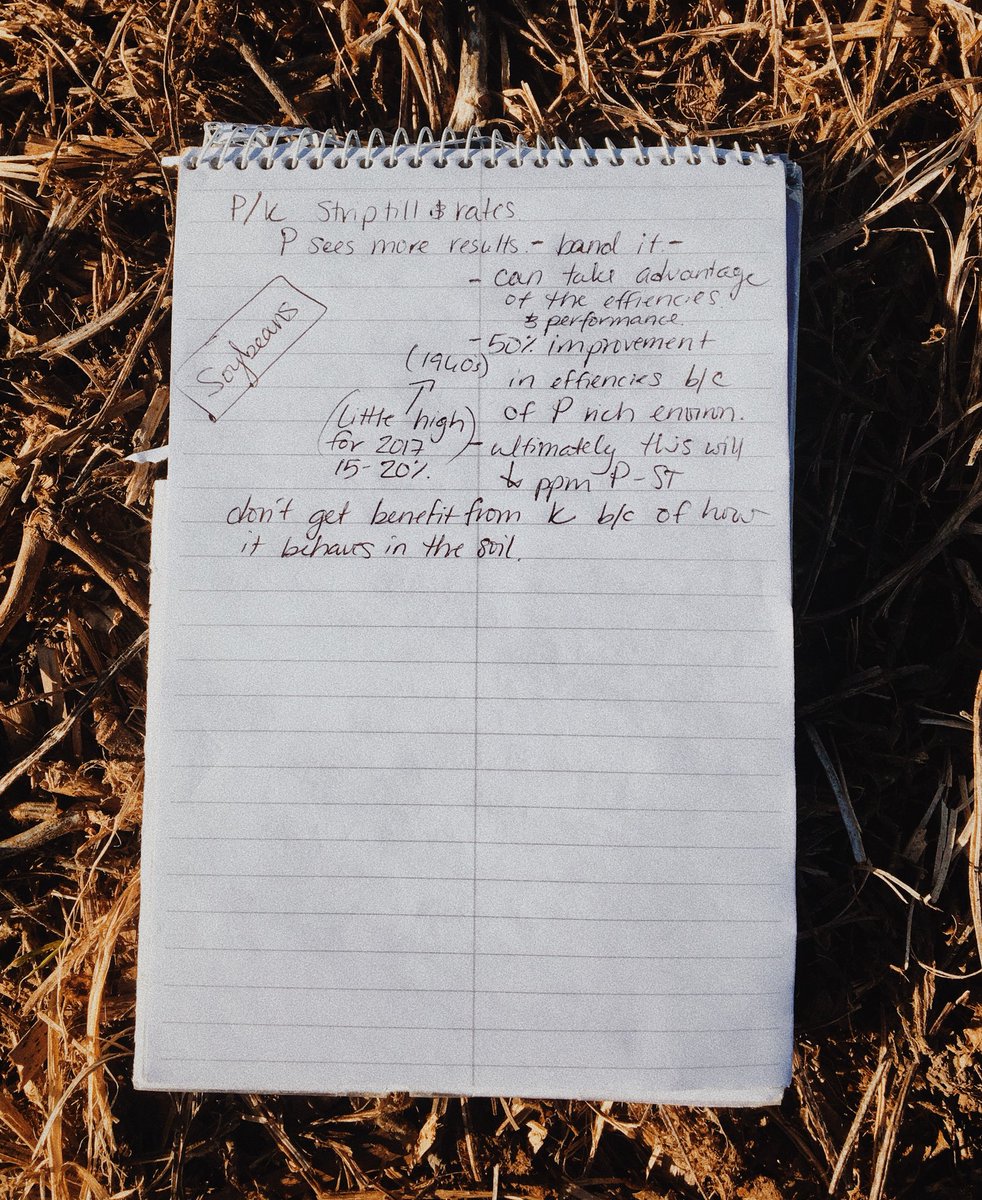 P/K Strip till & rates
P sees more results - band it -
- can take advantage
of the effiencies
& performance.
Soybeans
- 50% improvement
(1940s)
in effiencies b/c
of P rich environ.
(Little high
for 2017)
15-20%
- ultimately this will
↓ ppm P-ST
don't get benefit from K b/c of how
it behaves in the soil.